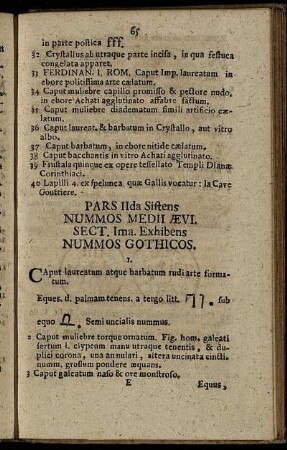 65
in parte postica fff.
32 Crystallus ab utraque parte incisa, in qua festuca
congelata apparet.
33 FERDINAN. I. ROM. Caput Imp. laureatum in
ebore politissima arte cælatum.
34 Caput muliebre capillo promisso & pectore nudo,
in ebore Achati agglutinato affabre factum.
35 Caput muliebre diadematum simili artificio cæ-
latum.
36 Caput laureat. & barbatum in Crystallo, aut vitro
albo.
37 Caput barbatum, in ebore nitide cælatum.
38 Caput bacchantis in vitro Achati agglutinato.
39 Frustula quinque ex opere tessellato Templi Dianæ
Corinthiaci.
40 Lapilli 4. ex spelunca quæ Gallis vocatur: la Cave
Gouttiere.
PARS IIda Sistens
NUMMOS MEDII ÆVI.
SECT. Ima. Exhibens
NUMMOS GOTHICOS.
1.
CAput laureatum atque barbatum rudi arte forma-
tum.
Eques. d. palmam tenens. a tergo litt. sub
equo Semi uncialis nummus.
2 Caput muliebre torque ornatum. Fig. hom. galeati
sertum l. clypeum manu utraque tenentis, & du-
plici corona, una annulari, altera uncinata cincti.
numm. grossum pondere æquans.
3 Caput galeatum naso & ore monstroso.
E Equus,